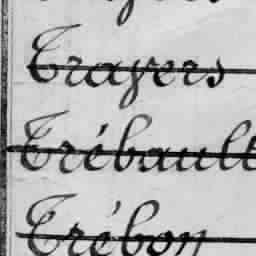 Travers
Trébault
Trébon